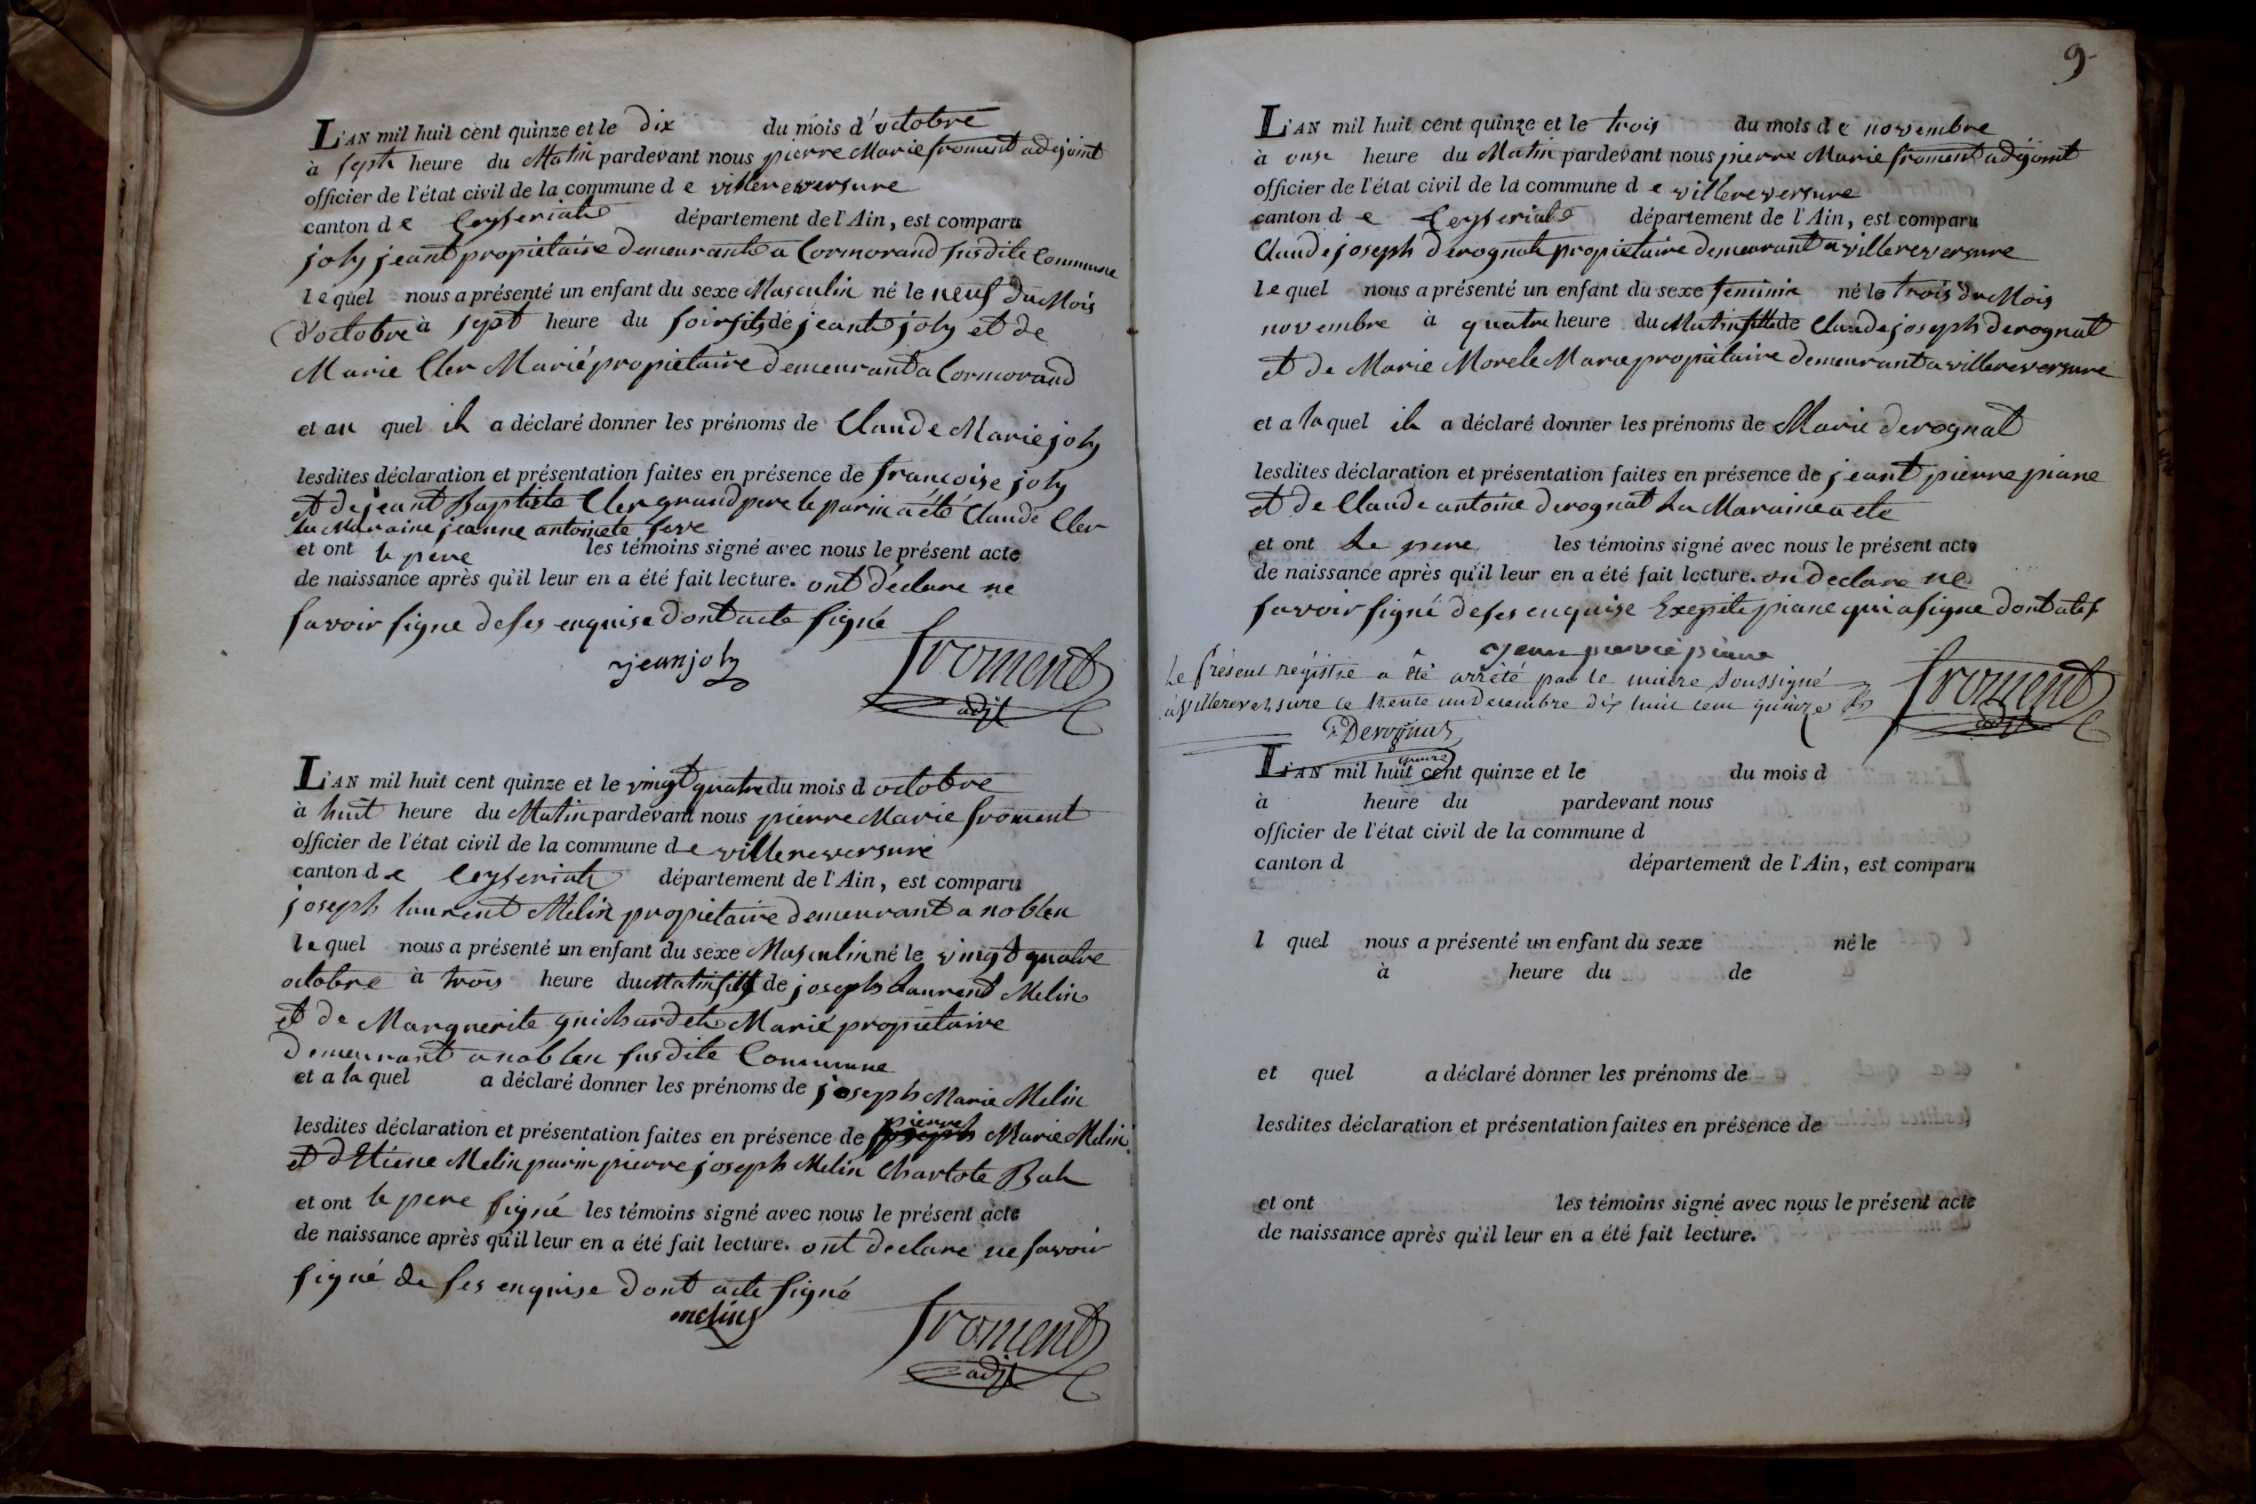 L'AN mil huit cent quinze et le dix du mois d'octobre
à sept heure du Matin pardevant nous pierre Marie froment adejoint
officier de l'état civil de la commune d e villereversure
canton d e Ceyseriat département de l'Ain, est comparu
joly jeant propietaire demeurant a Cormorand susdite Commune
le quel nous a présenté un enfant du sexe Masculin né le neuf du Mois
d'octobre à sept heure du soir fils de jeant joly et de
Marie Cler Marié propietaire demeurant a Cormorand
et au quel il a déclaré donner les prénoms de Claude Marie joly
lesdites déclaration et présentation faites en présence de francoise joly
et de jeant Baptiste Cler grand pere le parin a été Claude Cler
la Maraine jeanne antoinete
et ont le pere les témoins signé avec nous le présent acte
de naissance après qu'il leur en a été fait lecture. ont déclare ne
savoir signe de ses enquise dont acte signé
jean joly
froment
adjt
L'AN mil huit cent quinze et le vingt quatre du mois d octobre
à huit heure du Matin pardevant nous pierre Marie froment
officier de l'état civil de la commune d e villereversure
canton d e Ceyseriat département de l'Ain, est comparu
joseph laurent Melin propietaire demeurant a noblen
le quel nous a présenté un enfant du sexe Masculin né le vingt quatre
octobre à trois heure du Matin fils de joseph Laurent Melin
et de Marguerite guichardet Marié propietaire
demeurant a noblen susdite Commune
et a la quel a déclaré donner les prénoms de joseph Marie Melin
lesdites déclaration et présentation faites en présence de pierre Marie Melin
et d Etiene Melin parin pierre joseph Melin Charlote
et ont le pere signé les témoins signé avec nous le présent acte
de naissance après qu'il leur en a été fait lecture. ont declare ne savoir
signé de ses enquise dont acte signé
melin
froment
adjt
9
L'AN mil huit cent quinze et le trois du mois d e novembre
à onse heure du Matin pardevant nous pierre Marie froment adejoint
officier de l'état civil de la commune d e villereversure
canton d e Ceyseriat département de l'Ain, est comparu
Claude joseph derognat propietaire demeurant a villereversure
le quel nous a présenté un enfant du sexe feminin né le trois du Mois
novembre à quatre heure du Matin fille de Claude joseph derognat
et de Marie Morele Marie propietaire demeurant a villereversure
et a la quel il a déclaré donner les prénoms de Marie derognat
lesdites déclaration et présentation faites en présence de jeant pierre piane
et de Claude antoine derognat La Maraine a ete
et ont Le pere les témoins signé avec nous le présent acte
de naissance après qu'il leur en a été fait lecture. on declare ne
savoir signé de ses enquise Exepte piane qui a signe dont
jean pierre piane
Le présent régistre a été arrêté par le maire soussigné
à villereversure le trente un decembre dix huit cent quinze
froment
Derognat
L'AN mil huit cent quinze et le du mois d
à heure du pardevant nous
officier de l'état civil de la commune d
canton d département de l'Ain, est comparu
l quel nous a présenté un enfant du sexe né le
à heure du de
et quel a déclaré donner les prénoms de
lesdites déclaration et présentation faites en présence de
et ont les témoins signé avec nous le présent acte
de naissance après qu'il leur en a été fait lecture.